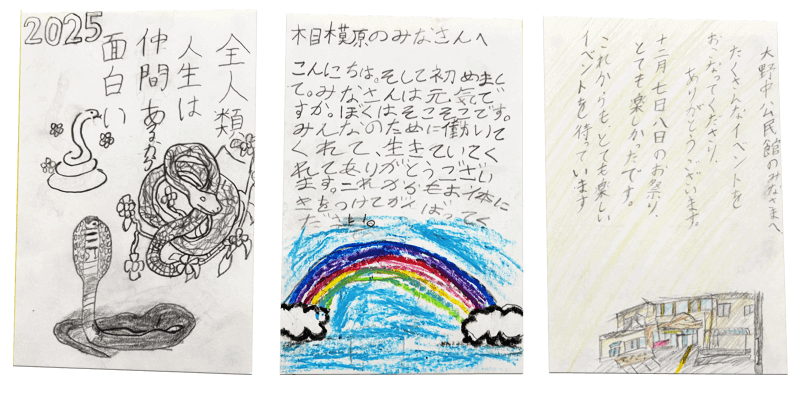 2025
全人類
人生は
仲間あるから
面白い
相模原のみなさんへ
こんにちは。そして初めまし
て。みなさんは元気で
すか。ぼくはそこそこです。
みんなのために働いて
くれて、生きていてく
れてありがとうござい
ます。これからもお体に
きをつけてがんばってく
ださい。
大野中公民館のみなさまへ
たくさんなイベントを
おこなってくださり、
ありがとうございます。
十二月七日八日のお祭り、
とても楽しかったです。
これからもとても楽しい
イベントを待っています